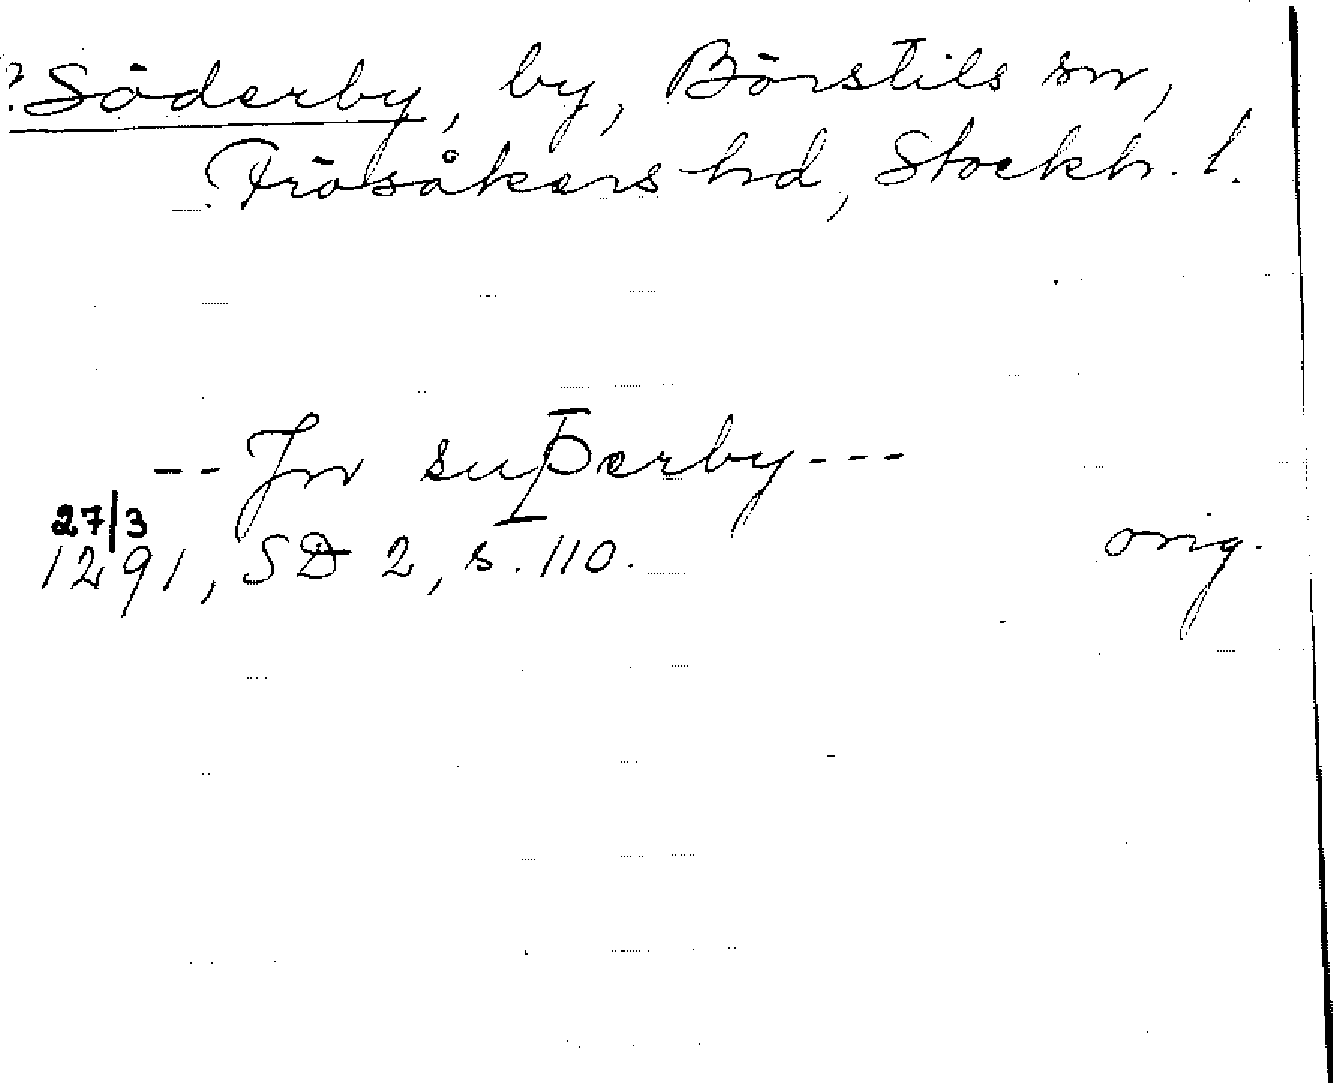 ? Söderby, by, Börstils sn,
Frösåkers hd, Stockh. l.
-- Jn suÞerby ---
27/3
1291, SD 2, s. 110.
orig.